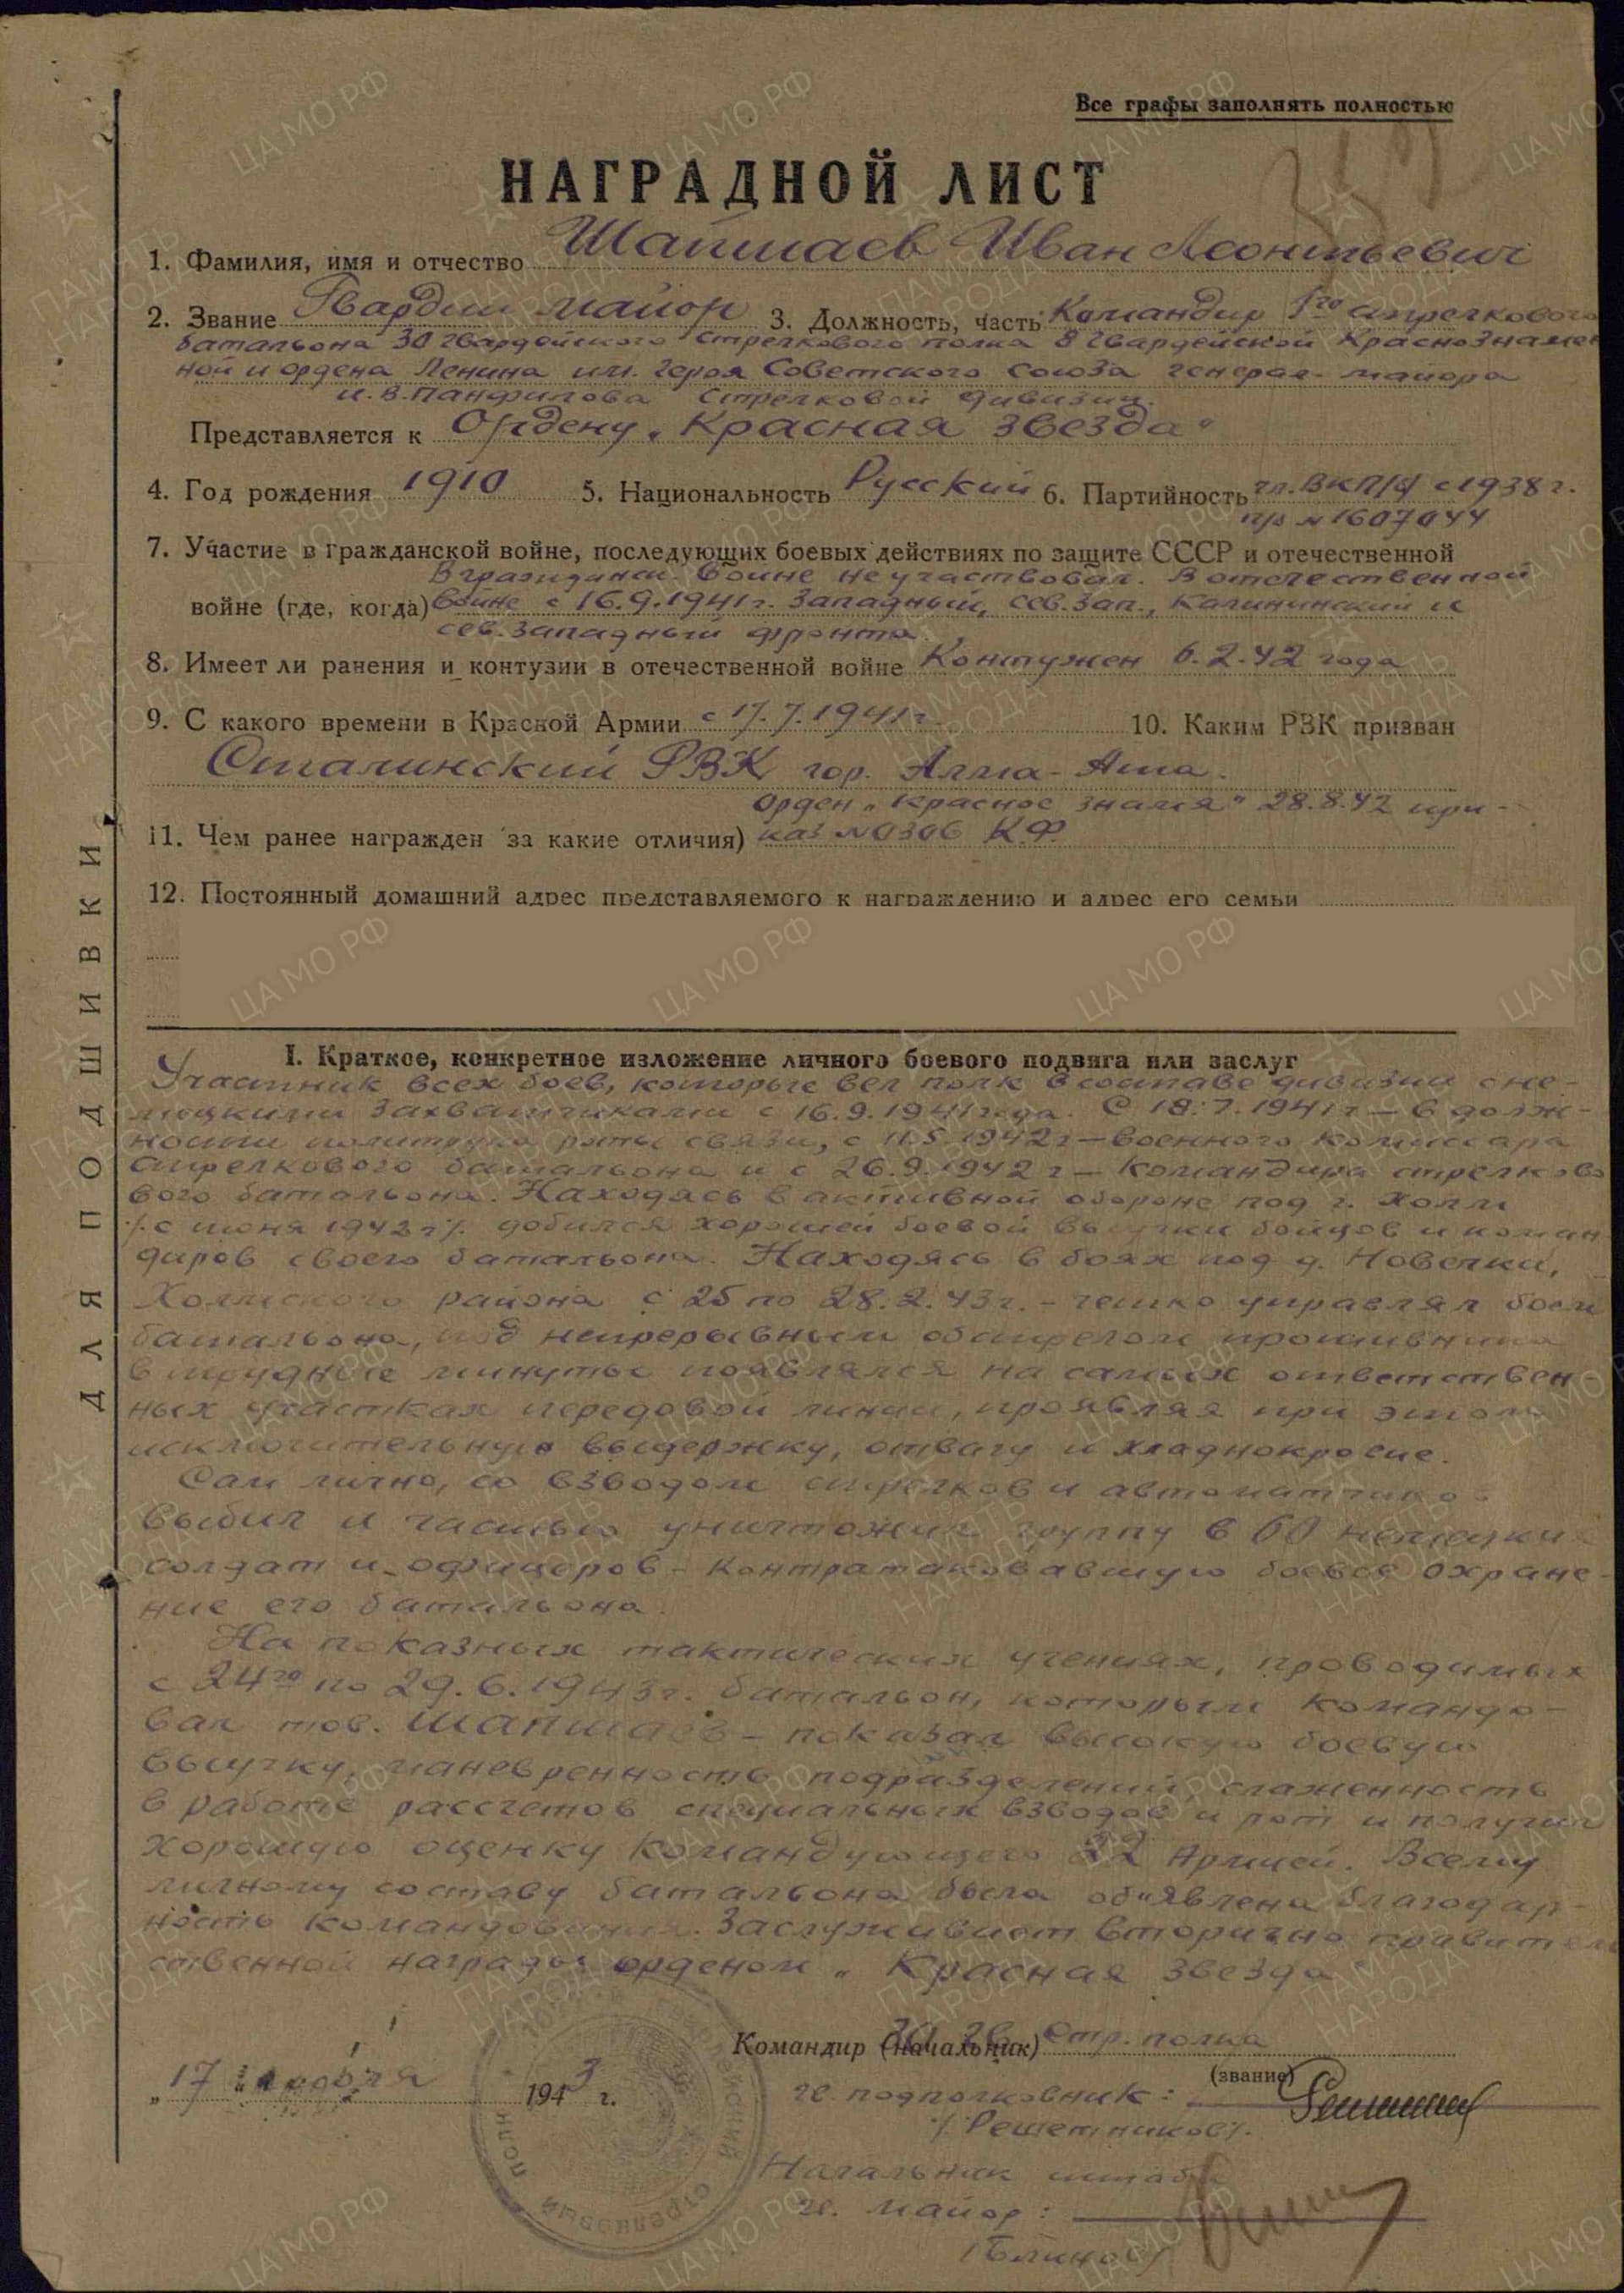 Все графы заполнять полностью
НАГРАДНОЙ ЛИСТ
1. Фамилия, имя и отчество Шапшаев Иван Леонтьевич
2. Звание Гвардии майор 3. Должность, часть Командир 1го стрелкового
батальона 30 гвардейского стрелкового полка 8 гвардейской Краснознамен
ной и ордена Ленина им. Героя Советского Союза генерал-майора
И.В. Панфилова стрелковой дивизии.
Представляется к Ордену „Красная звезда"
4. Год рождения 1910 5. Национальность Русский 6. Партийность чл. ВКП/б/ с 1938 г.
п/б № 1607044
7. Участие в гражданской войне, последующих боевых действиях по защите СССР и отечественной
В гражданск. войне не участвовал. В отечественной
войне (где, когда) войне с 16.9.1941 г. Западный, Сев. Зап., Калининский и
Сев. Западный фронта.
8. Имеет ли ранения и контузии в отечественной войне Контужен 6.2.42 года
9. С какого времени в Красной Армии с 17.7.1941 г. 10. Каким РВК призван
Сталинский РВК гор. Алма-Ата.
Орден „Красное знамя" 28.8.42 при-
11. Чем ранее награжден за какие отличия) каз №0306 К.Ф.
12. Постоянный домашний адрес представляемого к награждению и адрес его семьи
ДЛЯ ПОДШИВКИ
I. Краткое, конкретное изложение личного боевого подвига или заслуг
Участник всех боев, которые вел полк в составе дивизии с не-
мецкими захватчиками с 16.9.1941 года. С 18.7.1941 г – в долж-
ности политрука роты связи, с 11.5.1942 г – военного комиссара
стрелкового батальона и с 26.9.1942 г – командира стрелково
вого батальона. Находясь в активной обороне под г. Холм
/с июня 1942 г/. добился хорошей боевой выучки бойцов и коман
диров своего батальона. Находясь в боях под д. Новечки,
Холмского района с 25 по 28.2.43 г. – четко управлял боем
батальона, под непрерывным обстрелом противника
в трудные минуты появлялся на самых ответствен-
ных участках передовой линии, проявляя при этом
исключительную выдержку, отвагу и хладнокровие.
Сам лично, со взводом стрелков и автоматчиков
выбил и частью уничтожил группу в 60 немецких
солдат и офицеров – контратаковавшую боевое охране-
ние его батальона.
На показных тактических учениях, проводимых
с 24го по 29.6.1943 г. батальон, которым командо-
вал тов. Шапшаев – показал высокую боевую
выучку, маневренность подразделений, слаженность
в работе рассчетов специальных взводов и рот и получил
хорошую оценку Командующего 22 Армией. Всему
личному составу батальона была об"явлена благодар-
ность командования. Заслуживает вторично правитель
ственной награды орденом „Красная звезда
Командир (начальник) 30 гв. Стр. полка
(звание)
„17 ноября 1943 г.
гв. подполковник:
/Решетников/.
Начальник штаба
гв. майор:
/Блинов/
ЦА МО РФ
ПАМЯТЬ НАРОДА